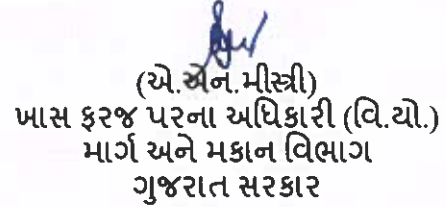 (એ.એન.મીસ્ત્રી)
ખાસ ફરજ પરના અધિકારી (વિ.યો.)
માર્ગ અને મકાન વિભાગ
ગુજરાત સરકાર